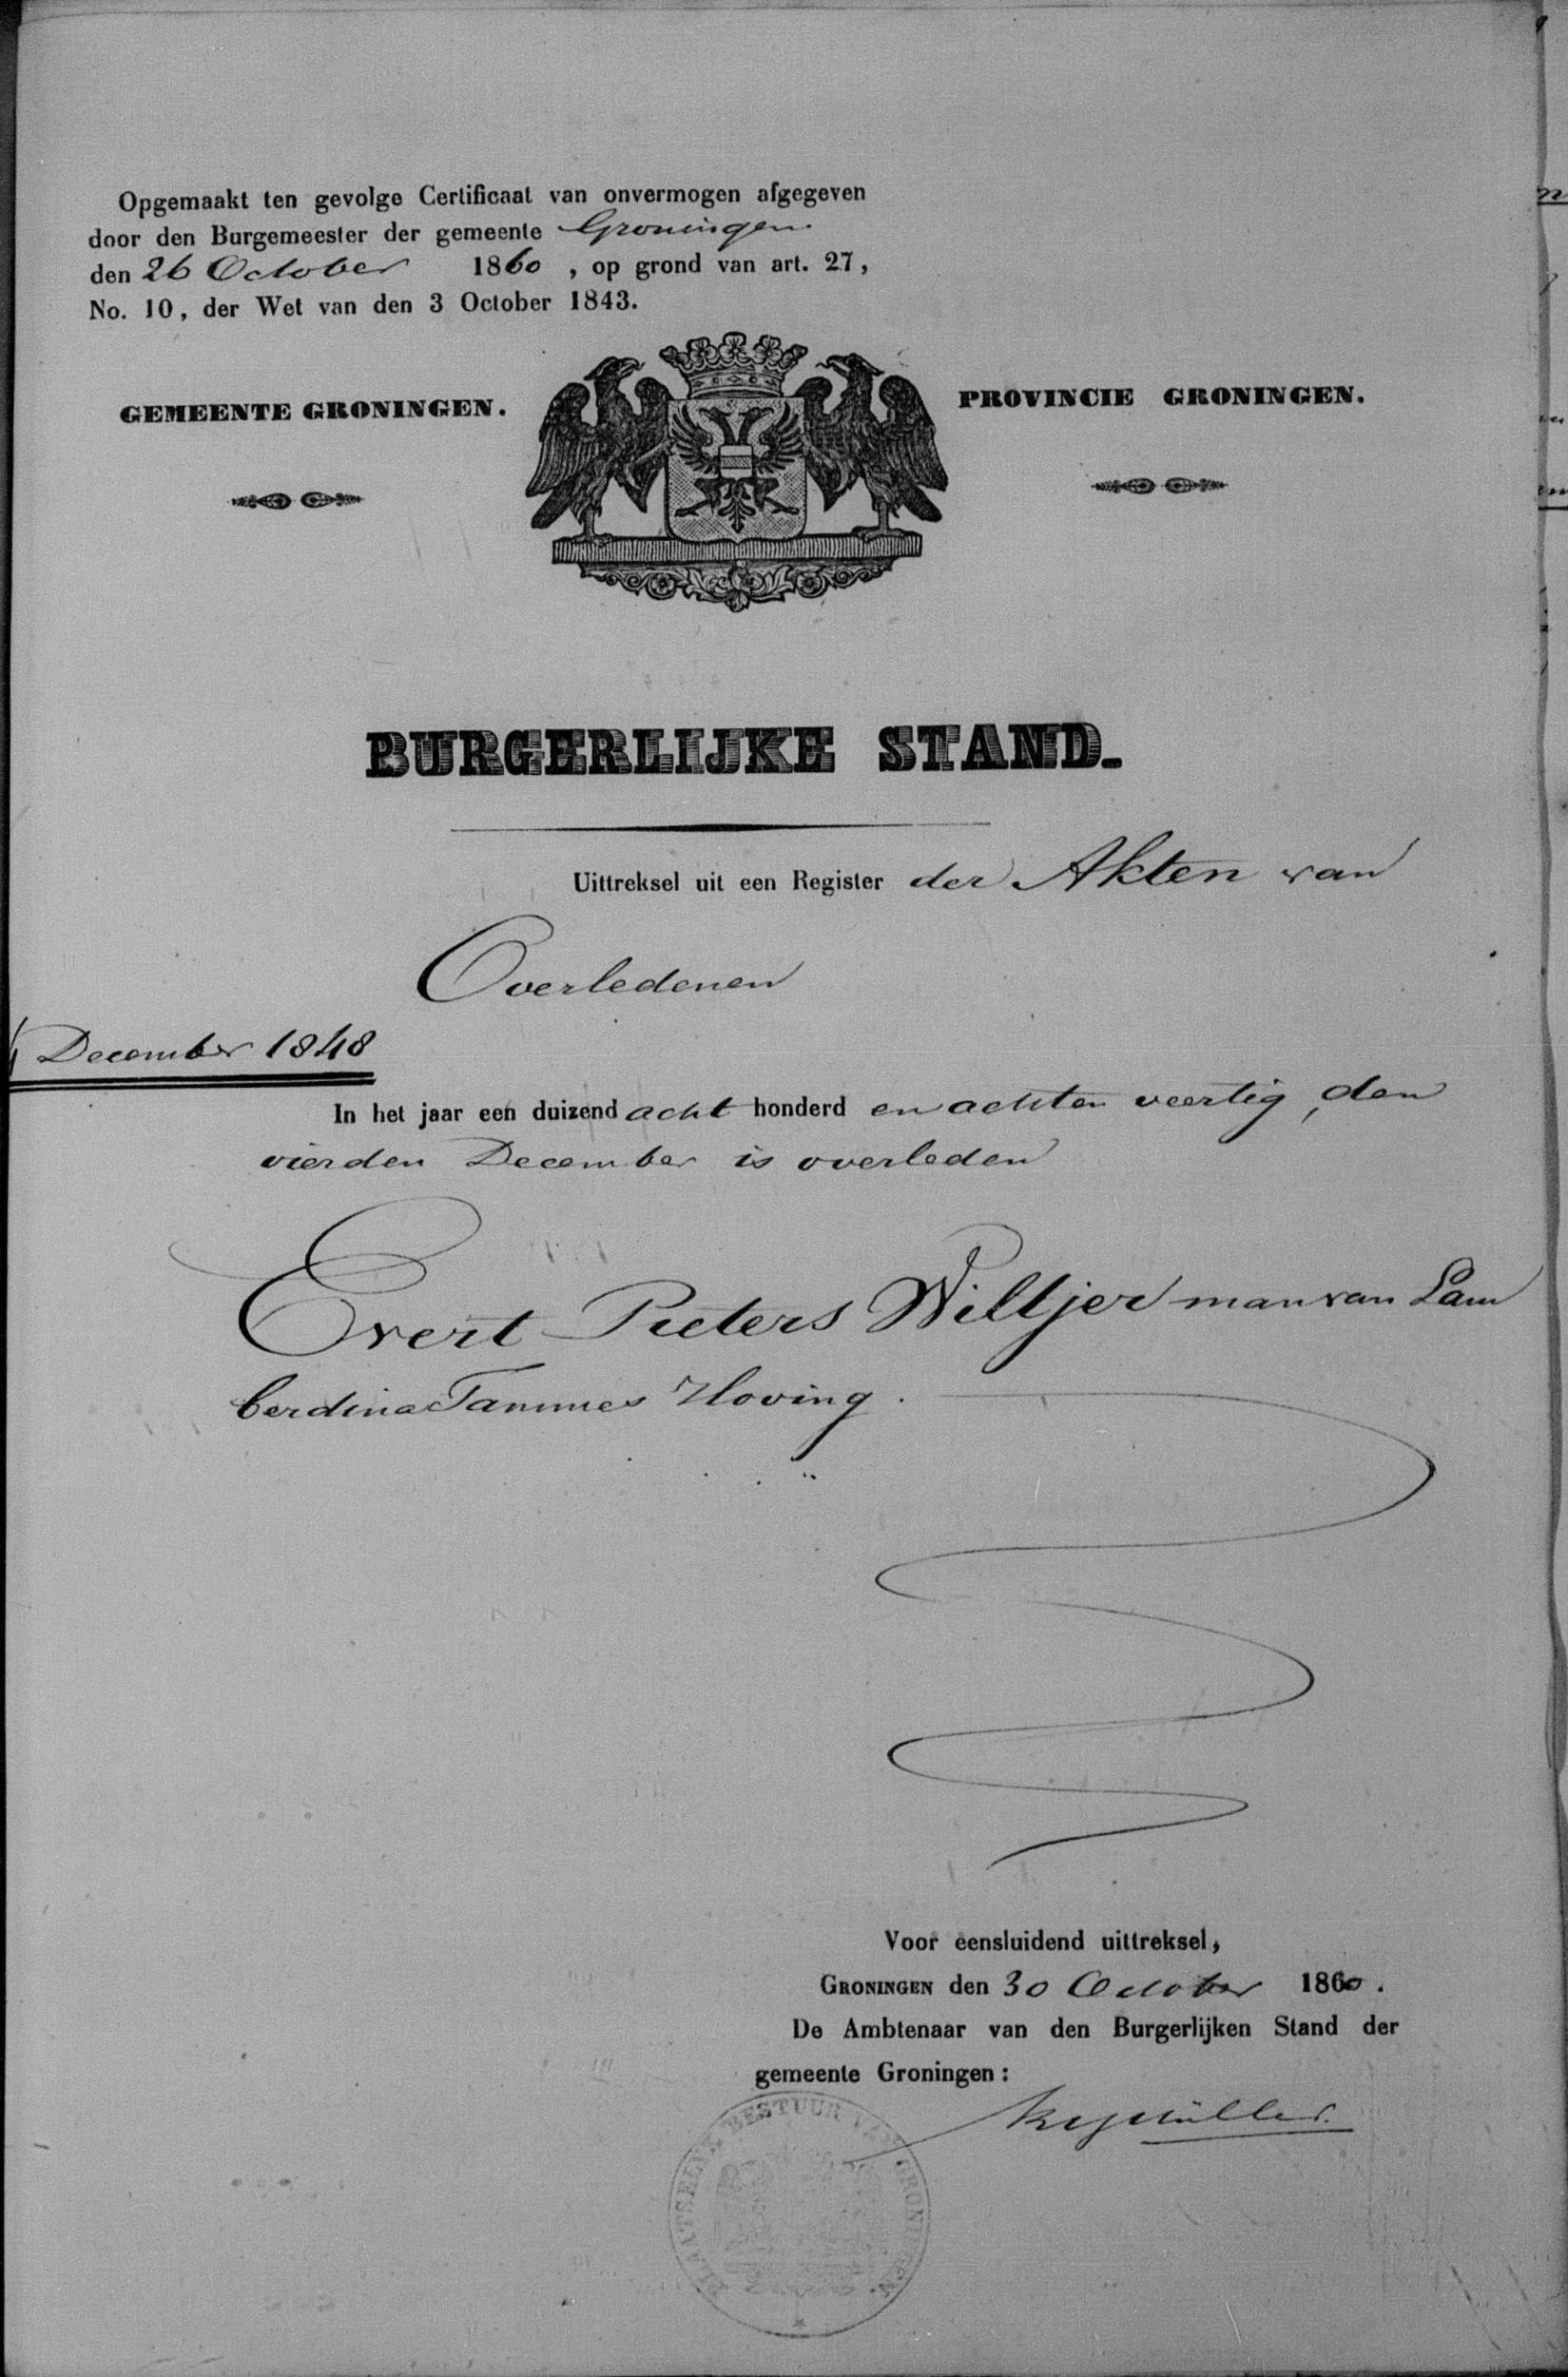 Opgemaakt ten gevolge Certificaat van onvermogen afgegeven
door den Burgemeester der gemeente Groningen
den 26 October 1860 , op grond van art. 27,
No. 10, der Wet van den 3 October 1843.
GEMEENTE GRONINGEN.
PROVINCIE GRONINGEN.
BURGERLIJKE STAND.
Uittreksel uit een Register der Akten van
Overledenen
December 1848
In het jaar een duizend acht honderd en achten veertig, den
vierden December is overleden
Evert Pieters Wiltjer man van Lam
berdina Tammes Hoving.
Voor eensluidend uittreksel,
GRONINGEN den 30 October 1860.
De Ambtenaar van den Burgerlijken Stand der
gemeente Groningen:
PLAATSELIJK BESTUUR VAN GRONINGEN.